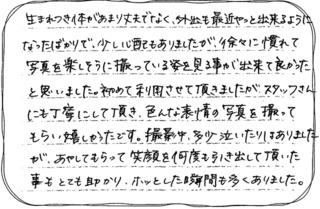 生まれつき体があまり丈夫でなく、外出も最近やっと出来るように
なったばかりで、少し心配もありましたが、徐々に慣れて
写真を楽しそうに撮っている姿を見る事が出来て良かった
と思いました。初めて利用させて頂きましたがスタッフさん
にも丁寧にして頂き、色んな表情の写真を撮って
もらい嬉しかったです。撮影中、多少泣いたりはありました
が、あやしてもらって笑顔を何度も引き出して頂いた
事もとても助かり、ホッとした瞬間も多くありました。